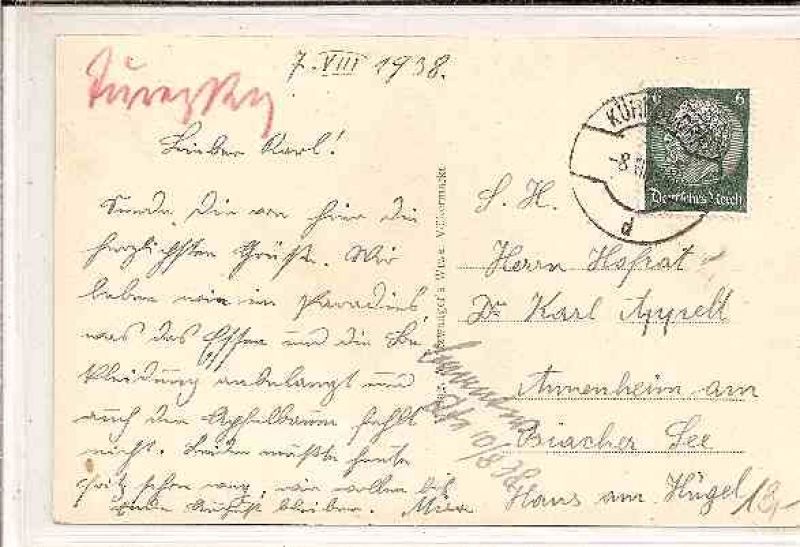 7. VIII 1938.
Lieber Karl!
Sende Dir von hier die
herzlichsten Grüße. Wir
leben wie im Paradies,
was das Essen und die Be-
kleidung anbelangt und
auch der Apfelbaum fehlt
nicht. Leider mußte heute
schon weg, wir wollen bis
Ende August bleiben.
6
Deutsches Reich
-8
d
S. H.
Herrn Hofrat
Dr Karl Appelt
Annenheim am
Ossiacher See
Haus am Hügel
10/8 38